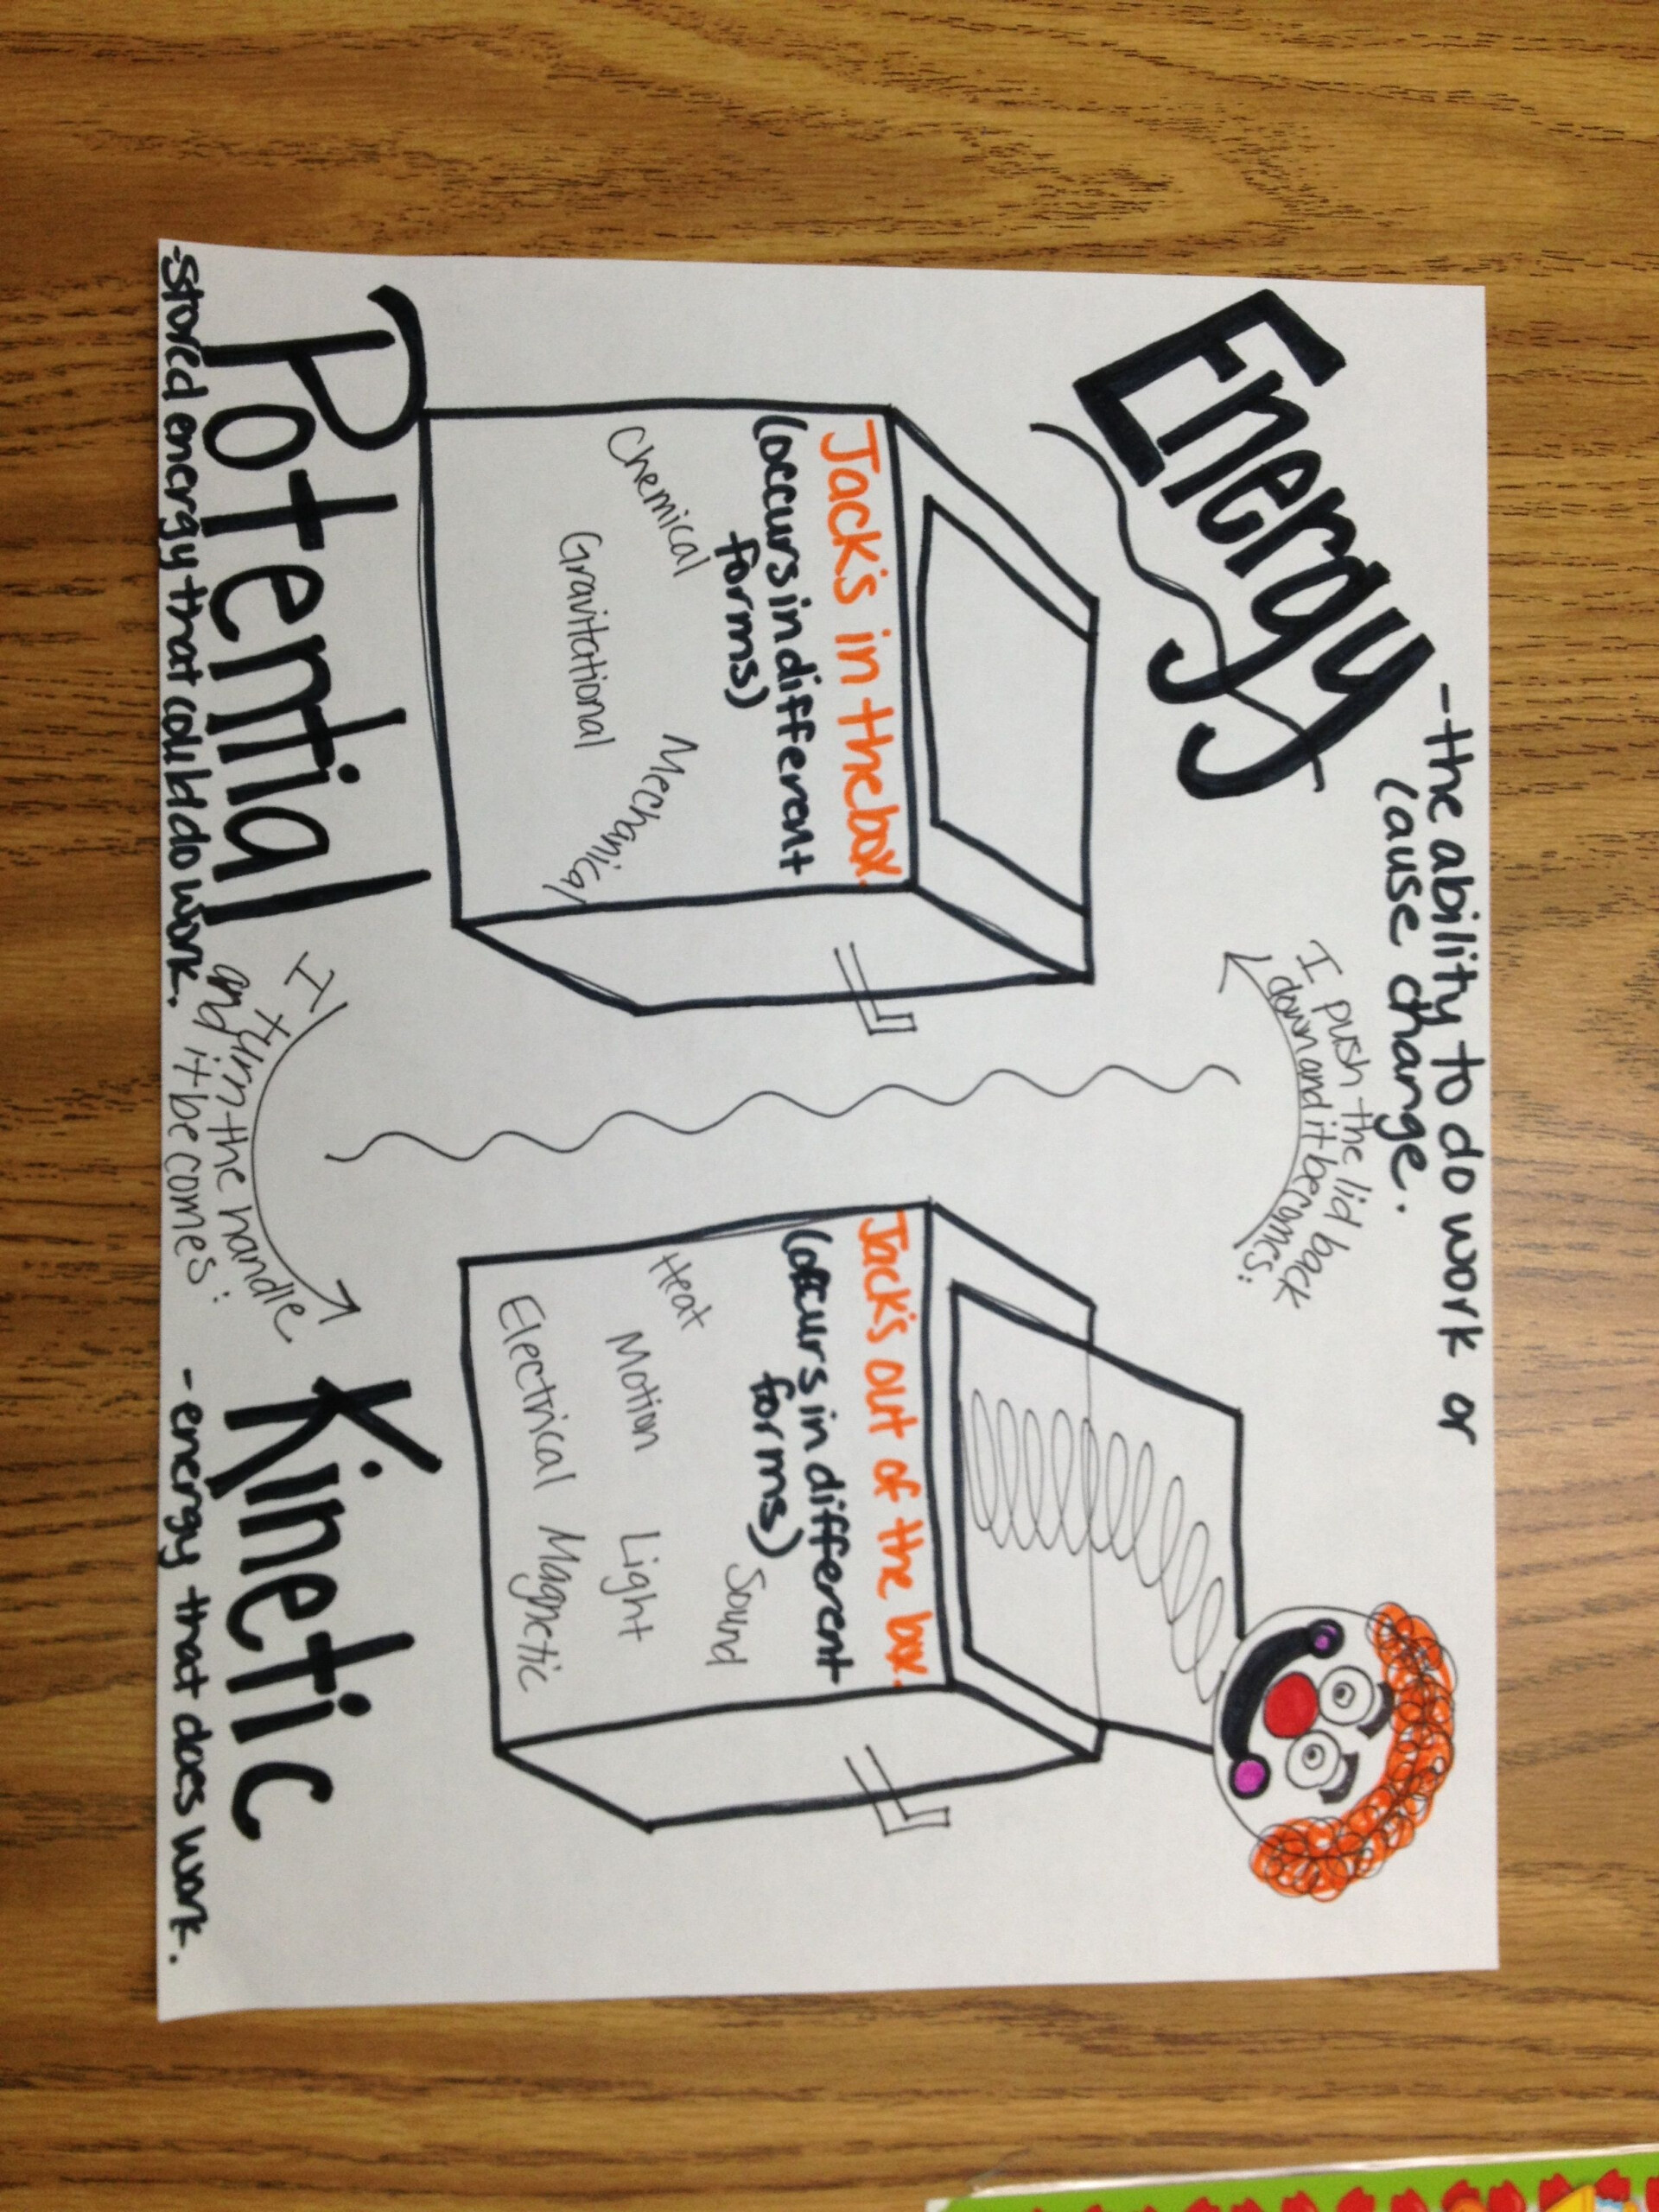 Energy
-the ability to do work or
cause change.
I push the lid back
down and it becomes:
Jack's in the box.
(occurs in different
forms)
Chemical
Mechanical
Gravitational
Jack's out of the box.
(occurs in different
forms)
Sound
Heat
Motion
Light
Electrical
Magnetic
I turn the handle
and it becomes:
Potential
-stored energy that could do work.
Kinetic
- energy that does work.